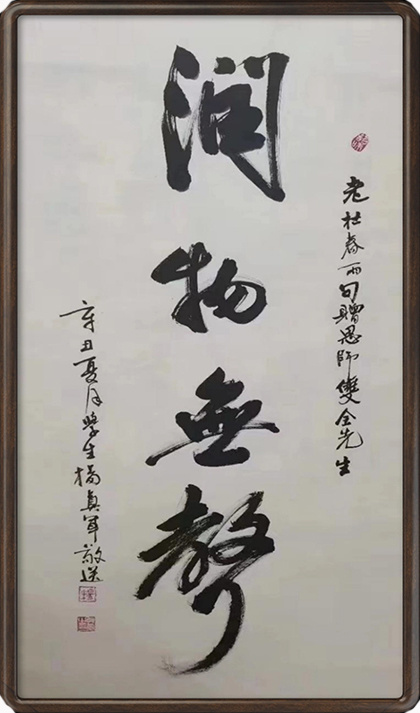 老杜春雨句贈恩師雙全先生
潤物無聲
辛丑夏月學生楊真軍敬送